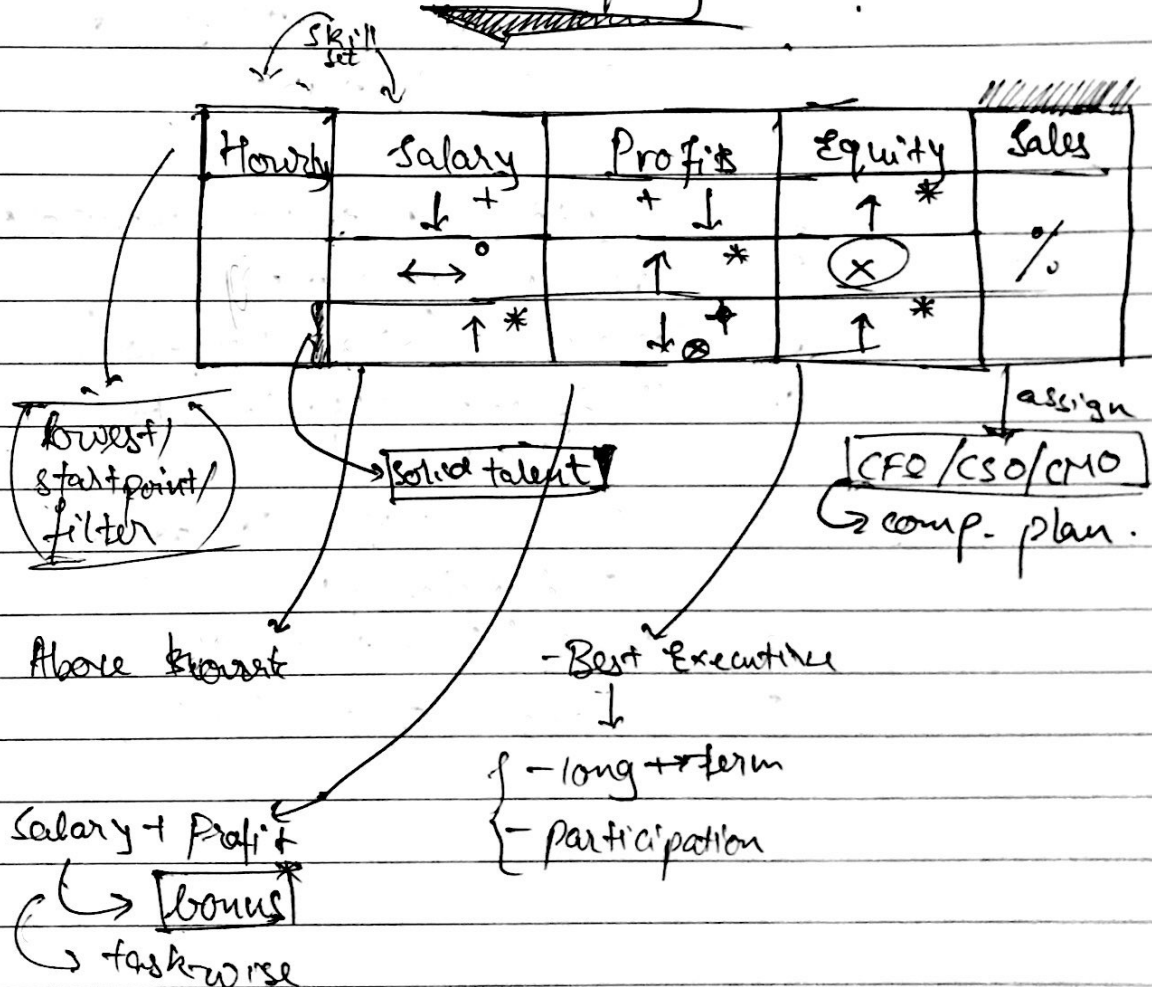 skill
set
Hourly Salary Profits Equity Sales
↓ + + ↓ ↑ *
↔ ° ↑ * x %
↑ * ↓ ⊗ ↑ *
assign
lowest/
startpoint/
filter
solid talent
CFO/CSO/CMO
comp. plan.
Above
- Best Executive
↓
- long term
- participation
Salary + Profit
bonus *
taskwise